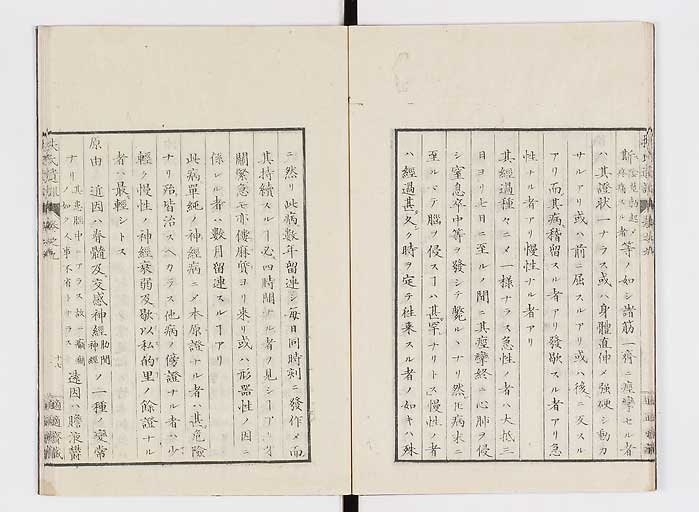 等ノ如シ諸筋一齊ニ痙攣セル者
ハ其證状一ナラス或ハ身體直伸シテ強硬シ動カ
サルアリ或ハ前ニ屈スルアリ或ハ後ニ反スル
アリ而其病稽留スル者アリ發歇スル者アリ急
性ナル者アリ慢性ナル者アリ
其經過種々ニシテ一様ナラス急性ノ者ハ大抵三
日ヨリ七日ニ至ルノ間ニ其痙攣終ニ心肺ヲ侵
シ窒息卒中等ヲ發シテ斃ルヽナリ然𪜈病末ニ
至ルマテ腦ヲ侵スヿハ甚罕ナリトス慢性ノ者
ハ經過甚久ク時ヲ定テ往来スル者ノ如キハ殊
ニ然リ此病數年留連シ毎日同時刻ニ發作シテ而
其持續スルヿ必四時間ナル者ヲ見シヿアリ
關緊急モ亦僂麻質ヨリ来リ或ハ形器性ノ因ニ
係レル者ハ數月留連スルヿアリ
此病單純ノ神經病ニシテ本原證ナル者ハ甚危險
ナリ殆皆治スヘカラス他病ノ傍證ナル者ハ少
輕ク慢性ノ神經衰弱及歇以私的里ノ餘證ナル
者ハ最輕シトス
原由 近因ハ脊髓及交感神經肋間神經ノ一種ノ變常
ナリ 遠因ハ膽液欝
十七
適適齋藏